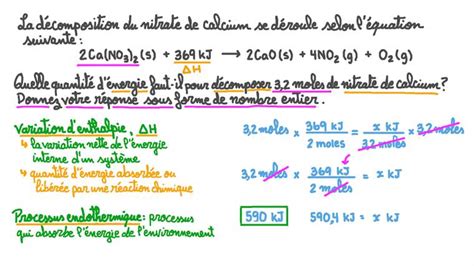 La décomposition du nitrate de calcium se déroule selon l'équation
suivante :
2Ca(NO₃)₂(s) + 369 kJ ⟶ 2CaO(s) + 4NO₂(g) + O₂(g)
ΔH
Quelle quantité d'énergie faut-il pour décomposer 3,2 moles de nitrate de calcium ?
Donnez votre réponse sous forme de nombre entier.
Variation d'enthalpie, ΔH
↳ la variation nette de l'énergie
interne d'un système
↳ quantité d'énergie absorbée ou
libérée par une réaction chimique
Processus endothermique : processus
qui absorbe l'énergie de l'environnement
3,2 moles × 369 kJ / 2 moles = x kJ / 3,2 moles × 3,2 moles
3,2 moles × 369 kJ / 2 moles = x kJ
590 kJ 590,4 kJ = x kJ